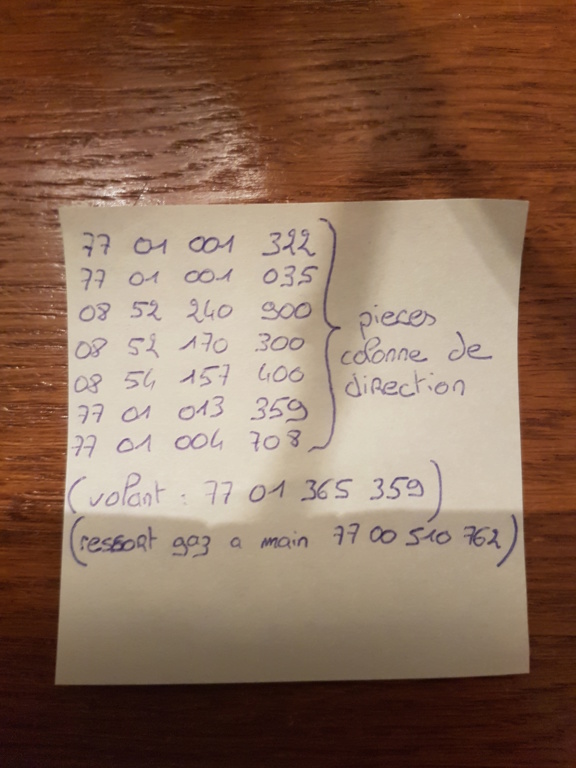 77 01 001 322
77 01 001 035
08 52 240 900
08 52 170 300
08 54 157 400
77 01 013 359
77 01 004 708
pieces
colonne de
direction
(volant : 77 01 365 359)
(ressort gaz a main 77 00 510 762)